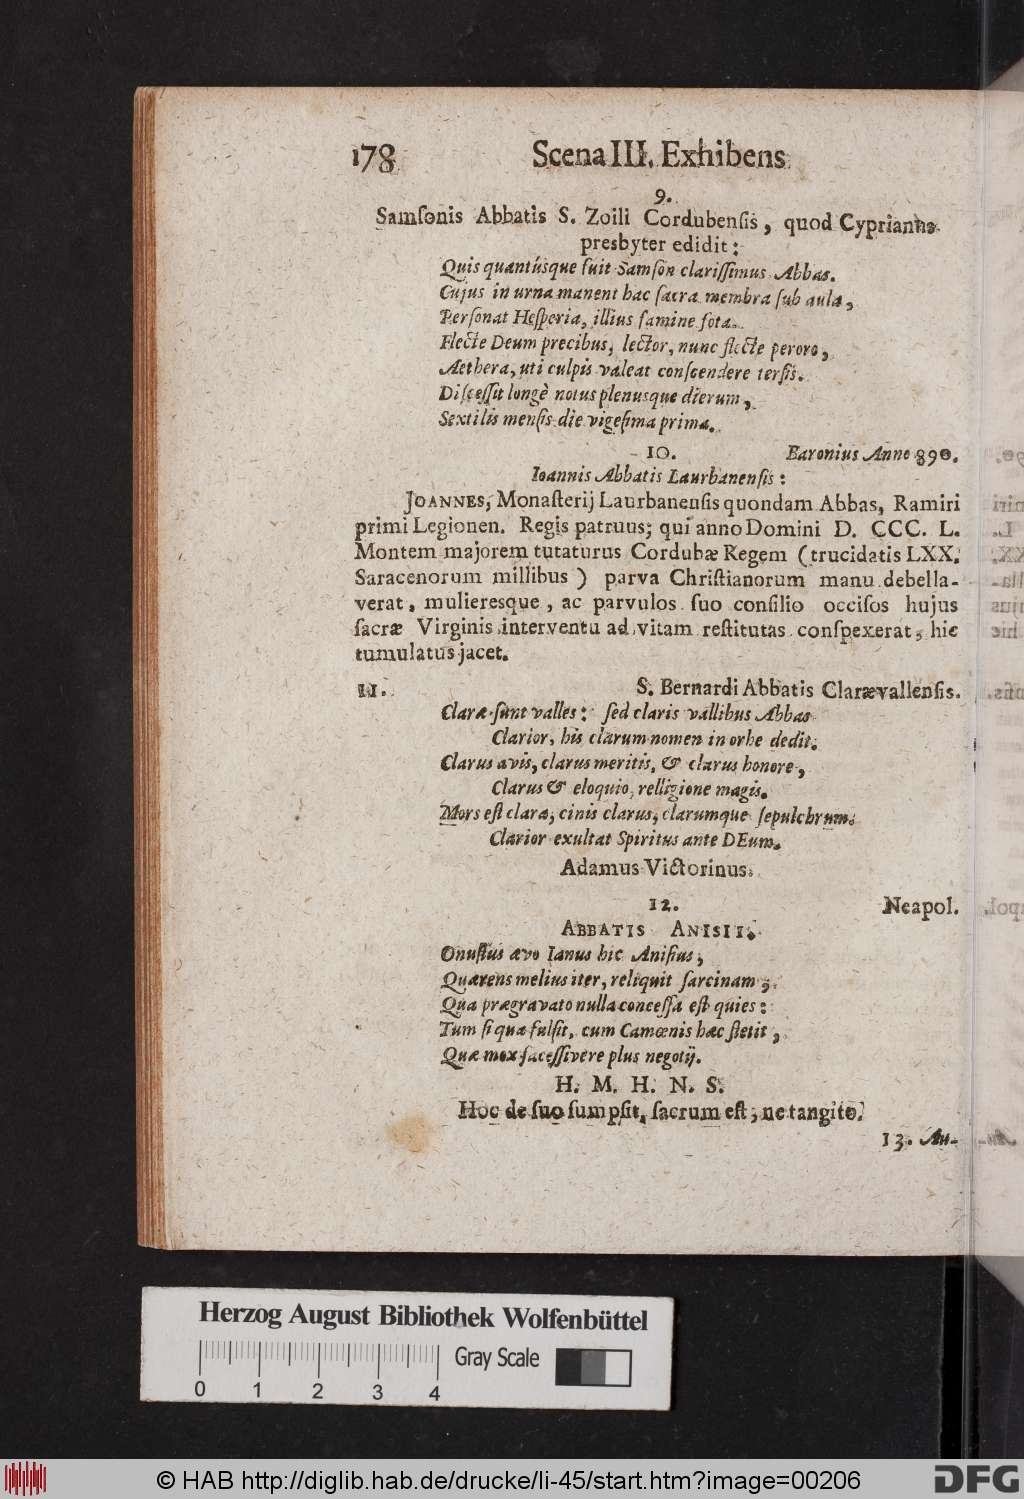 178 Scena III. Exhibens
9.
Samſonis Abbatis S. Zoili Cordubenſis, quod Cyprianus
presbyter edidit:
Quis quantúsque fuit Samſon clariſſimus Abbas.
Cujus in urna manent hac ſacra membra ſub aula,
Perſonat Heſperia, illius famine fota.
Flecte Deum precibus, lector, nunc flecte peroro,
Aethera, uti culpis valeat conſcendere terſis.
Diſceſſit longè notus plenusque dierum,
Sextilis menſis die vigeſima prima.
10. Baronius Anno 890.
Ioannis Abbatis Laurbanenſis:
JOANNES, Monaſterij Laurbanenſis quondam Abbas, Ramiri
primi Legionen. Regis patruus; qui anno Domini D. CCC. L.
Montem majorem tutaturus Cordubæ Regem (trucidatis LXX.
Saracenorum millibus) parva Chriſtianorum manu debella-
verat, mulieresque, ac parvulos ſuo conſilio occiſos hujus
ſacræ Virginis interventu ad vitam reſtitutas conſpexerat, hic
tumulatus jacet.
11. S. Bernardi Abbatis Claræevallenſis.
Claræ ſunt valles: ſed claris vallibus Abbas
Clarior, his clarum nomen in orbe dedit.
Clarus avis, clarus meritis, & clarus honore,
Clarus & eloquio, relligione magis.
Mors eſt clara, cinis clarus, clarumque ſepulchrum.
Clarior exultat Spiritus ante DEum.
Adamus Victorinus.
12. Neapol.
ABBATIS ANISII.
Onuſtus ævo Ianus hic Aniſius,
Quærens melius iter, reliquit ſarcinam,
Qua prægravato nulla conceſſa eſt quies:
Tum ſi qua fulſit, cum Camœnis hæc ſtetit,
Quæ mox faceſſivere plus negotij.
H. M. H. N. S.
Hoc de ſuo ſumpſit, ſacrum eſt, ne tangito.
13. Au-
Herzog August Bibliothek Wolfenbüttel
Gray Scale
0 1 2 3 4
© HAB http://diglib.hab.de/drucke/li-45/start.htm?image=00206
DFG